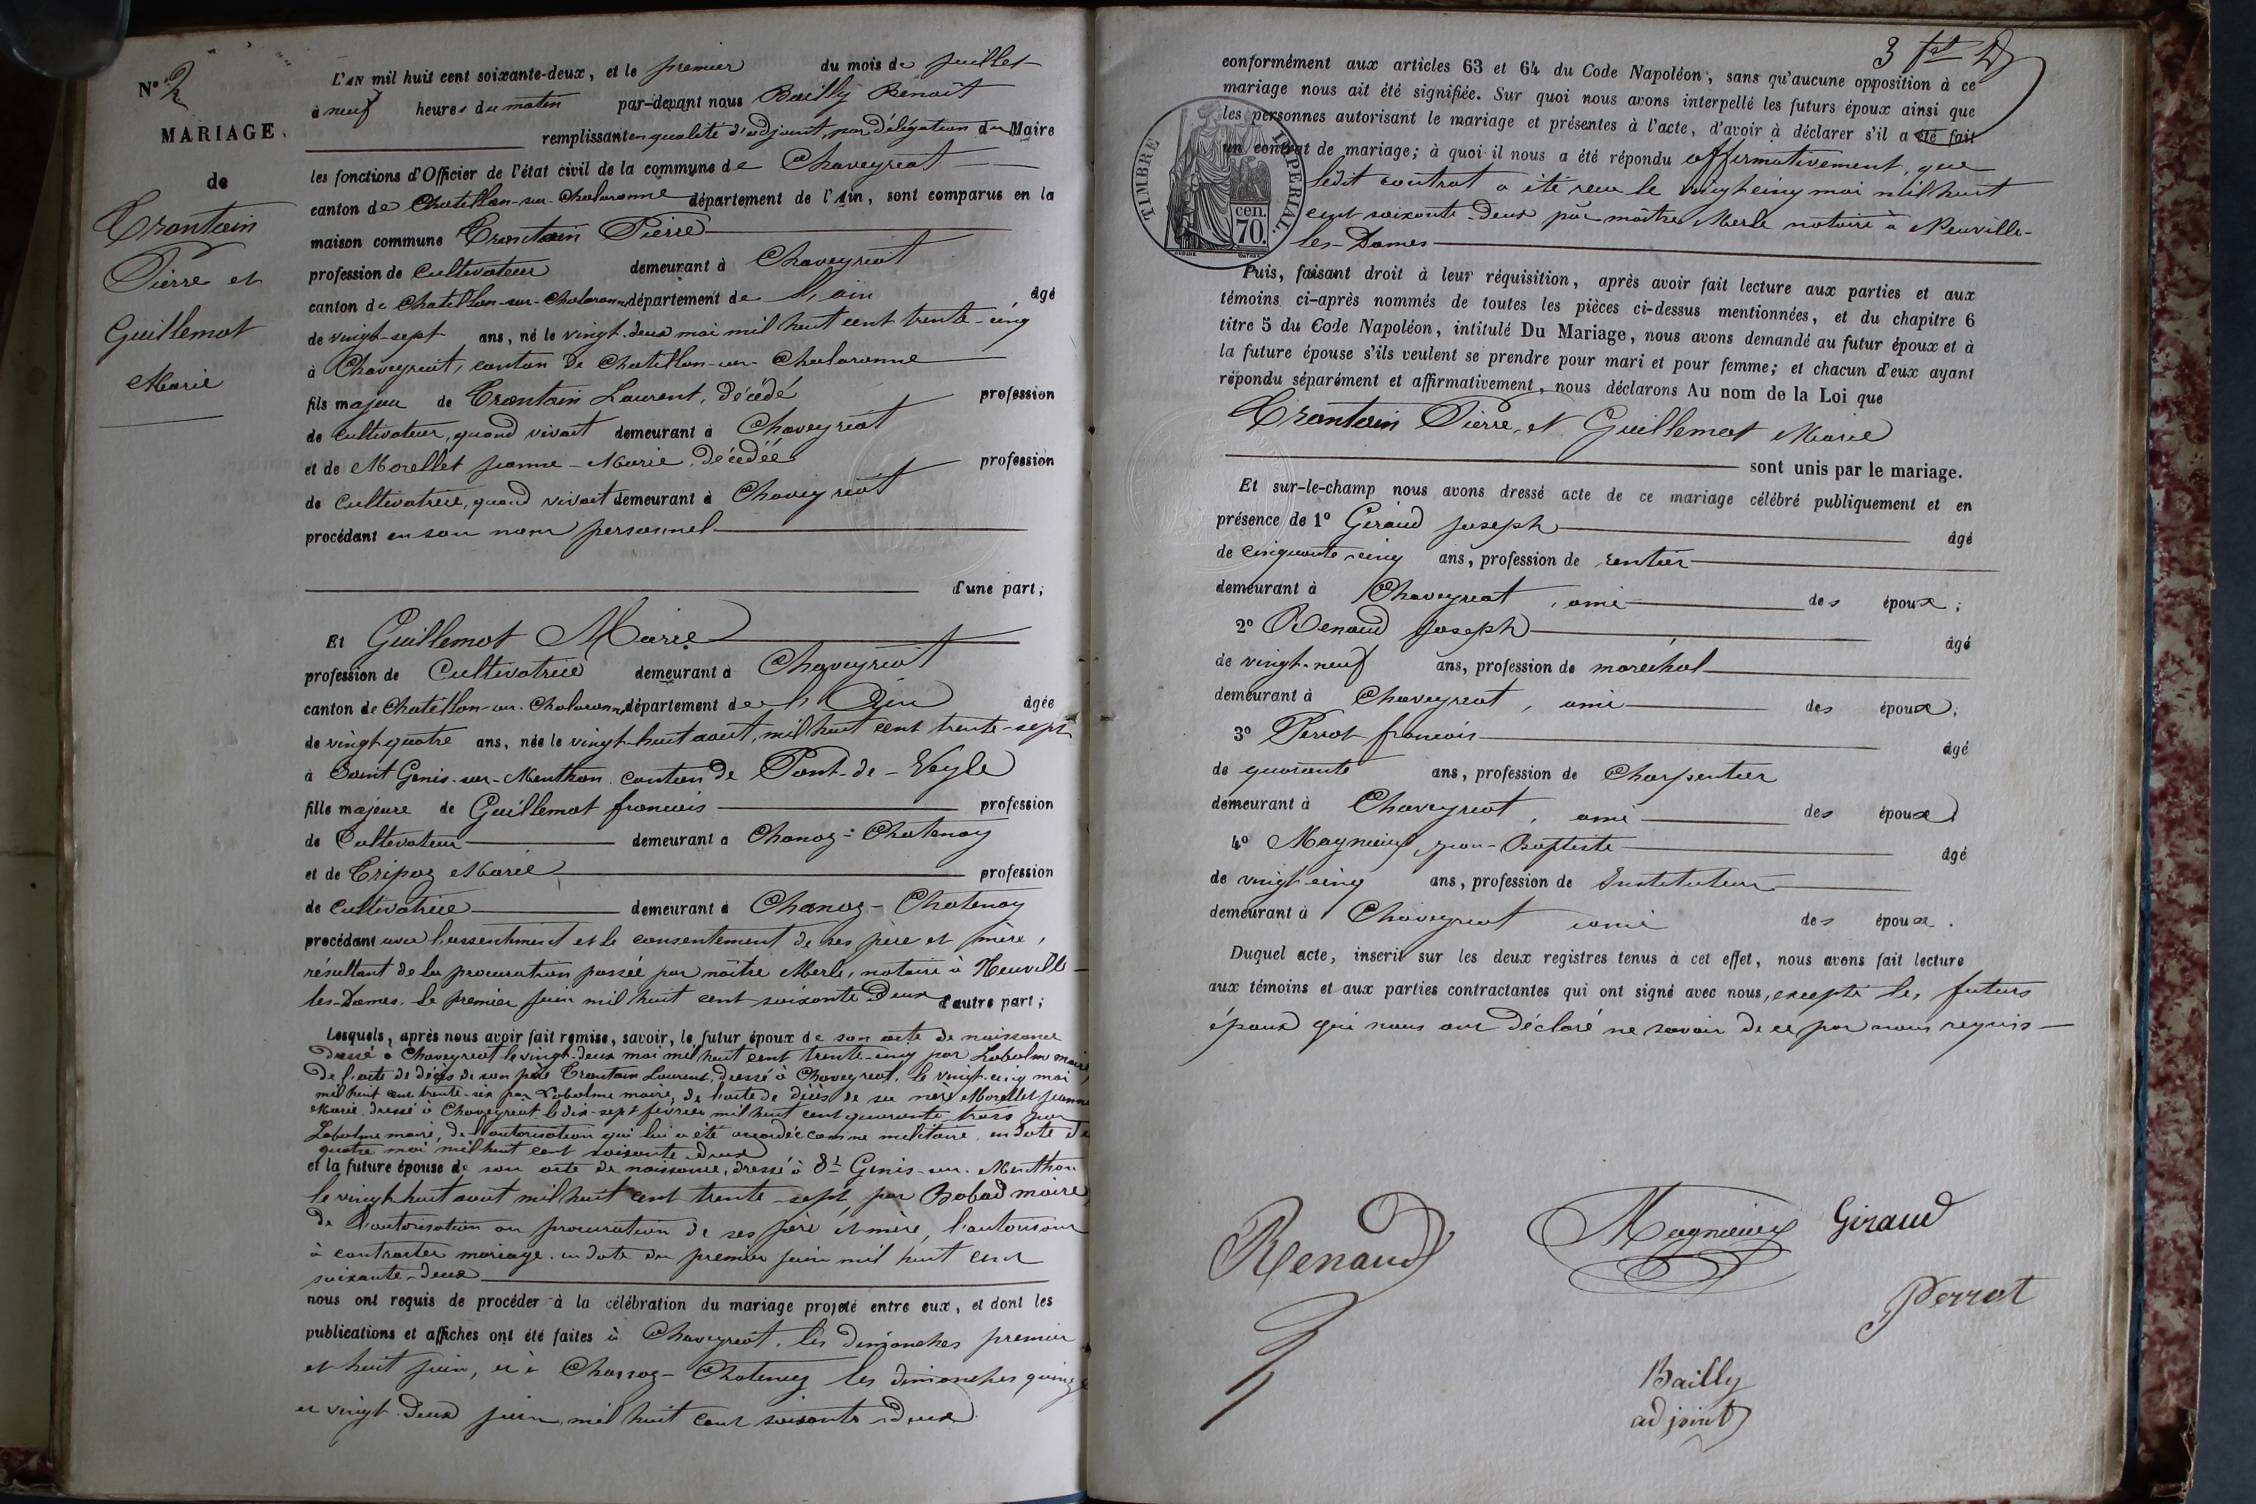 N° 2
MARIAGE
de
Trontain
Pierre et
Guillemot
Marie
L'AN mil huit cent soixante-deux, et le premier du mois de juillet
à neuf heures du matin par-devant nous Bailly Benoît
remplissant en qualité d'adjoint, par délégation du Maire
les fonctions d'Officier de l'état civil de la commune de Chaveyriat
canton de Chatillon-sur-Chalaronne département de l'Ain, sont comparus en la
maison commune Trontain Pierre
profession de cultivateur demeurant à Chaveyriat
canton de Chatillon-sur-Chalaronne département de l'ain âgé
de vingt-sept ans, né le vingt-deux mai mil huit cent trente-cinq
à Chaveyriat, canton de Chatillon-sur-Chalaronne
fils majeur de Trontain Laurent, décédé profession
de cultivateur, quand vivait demeurant à Chaveyriat
et de Morellet jeanne-Marie, décédée profession
de cultivatrice, quand vivait demeurant à Chaveyriat
procédant en son nom personnel
d'une part;
Et Guillemot Marie
profession de Cultivatrice demeurant à Chaveyriat
canton de Chatillon-sur-Chalaronne département de l'Ain âgée
de vingt-quatre ans, née le vingt-huit aout, mil huit cent trente-sept
à Saint Genis-sur-Menthon canton de Pont-de-Veyle
fille majeure de Guillemot francois profession
de Cultivateur demeurant à Chanoz-Chatenay
et de Tripoz Marie profession
de cultivatrice demeurant à Chanoz-Chatenay
procédant avec l'assentiment et le consentement de ses père et mère,
résultant de la procuration passée par maître Merle, notaire à Neuville-
les-Dames, le premier juin mil huit cent soixante-deux d'autre part;
Lesquels, après nous avoir fait remise, savoir, le futur époux de son acte de naissance
dressé à Chaveyriat le vingt-deux mai mil huit cent trente-cinq par Labalme maire,
de l'acte de décès de son père Trontain Laurent, dressé à Chaveyriat, le vingt-cinq mai
mil huit cent trente-six par Labalme maire, de l'acte de décès de sa mère Morellet jeanne
Marie, dressé à Chaveyriat le dix-sept février mil huit cent quarante trois par
Labalme maire, de l'autorisation qui lui a été accordée comme militaire, en date du
quatre mai mil huit cent soixante-deux
et la future épouse de son acte de naissance, dressé à St Genis-sur-Menthon
le vingt-huit aout mil huit cent trente-sept, par Bobad maire,
de l'autorisation ou procuration de ses père et mère, l'autorisant
à contracter mariage, en date du premier juin mil huit cent
soixante-deux
nous ont requis de procéder à la célébration du mariage projeté entre eux, et dont les
publications et affiches ont été faites à Chaveyriat, les dimanches premier
et huit juin, et à Chanoz-Chatenay les dimanches quinze
et vingt-deux juin, mil huit cent soixante-deux.
3
conformément aux articles 63 et 64 du Code Napoléon, sans qu'aucune opposition à ce
mariage nous ait été signifiée. Sur quoi nous avons interpellé les futurs époux ainsi que
les personnes autorisant le mariage et présentes à l'acte, d'avoir à déclarer s'il a été fait
un contrat de mariage; à quoi il nous a été répondu affirmativement, que
ledit contrat a été recu le vingt-cinq mai mil huit
cent soixante-deux par maître Merle notaire à Neuville-
les-Dames
TIMBRE IMPERIAL.
70.
cen.
Puis, faisant droit à leur réquisition, après avoir fait lecture aux parties et aux
témoins ci-après nommés de toutes les pièces ci-dessus mentionnées, et du chapitre 6
titre 5 du Code Napoléon, intitulé Du Mariage, nous avons demandé au futur époux et à
la future épouse s'ils veulent se prendre pour mari et pour femme; et chacun d'eux ayant
répondu séparément et affirmativement, nous déclarons Au nom de la Loi que
Trontain Pierre, et Guillemot Marie
sont unis par le mariage.
Et sur-le-champ nous avons dressé acte de ce mariage célébré publiquement et en
présence de 1° Giraud joseph âgé
de cinquante-cinq ans, profession de rentier
demeurant à Chaveyriat, ami des époux;
2° Renaud joseph âgé
de vingt-neuf ans, profession de maréchal
demeurant à Chaveyriat, ami des époux;
3° Perrot francois âgé
de quarante ans, profession de Charpentier
demeurant à Chaveyriat, ami des époux;
4° Magnieux, jean-Baptiste âgé
de vingt-cinq ans, profession de Instituteur
demeurant à Chaveyriat ami des époux.
Duquel acte, inscrit sur les deux registres tenus à cet effet, nous avons fait lecture
aux témoins et aux parties contractantes qui ont signé avec nous, excepté les futurs
époux qui nous ont déclaré ne savoir de ce par nous requis
Renaud Magnieux Giraud
Perrot
Bailly
adjoint